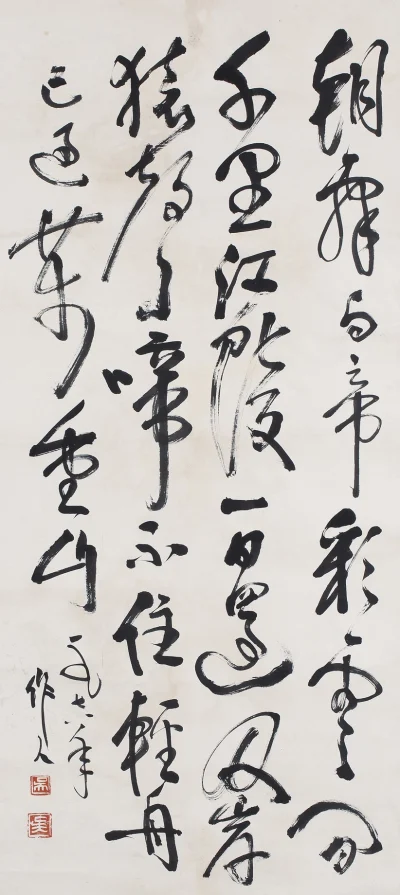 朝辭白帝彩雲間
千里江陵一日還兩岸
猿聲啼不住輕舟
已過萬重山
一九七八年
作人